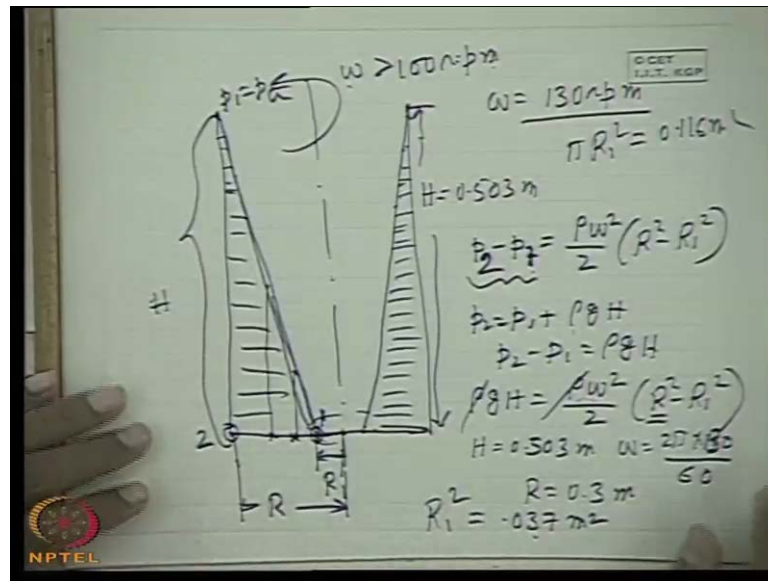 ω > 100 r.p.m
© CET
I.I.T. KGP
p₁ = pₐ
ω = 130 r.p.m
πR₁² = 0.116 m²
H = 0.503 m
p₂ - p₁ = ρω²/2 (R² - R₁²)
H
p₂ = p₁ + ρgH
p₂ - p₁ = ρgH
ρgH = ρω²/2 (R² - R₁²)
2
H = 0.503 m ω = 2π × 130/60
R₁
R
R = 0.3 m
R₁² = .037 m²
NPTEL